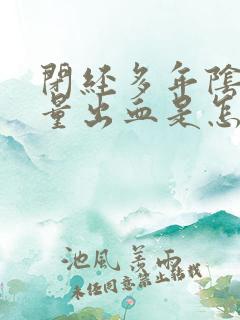 閉經多年陰
量出血是怎
池風羨雨
未經同意禁止轉載